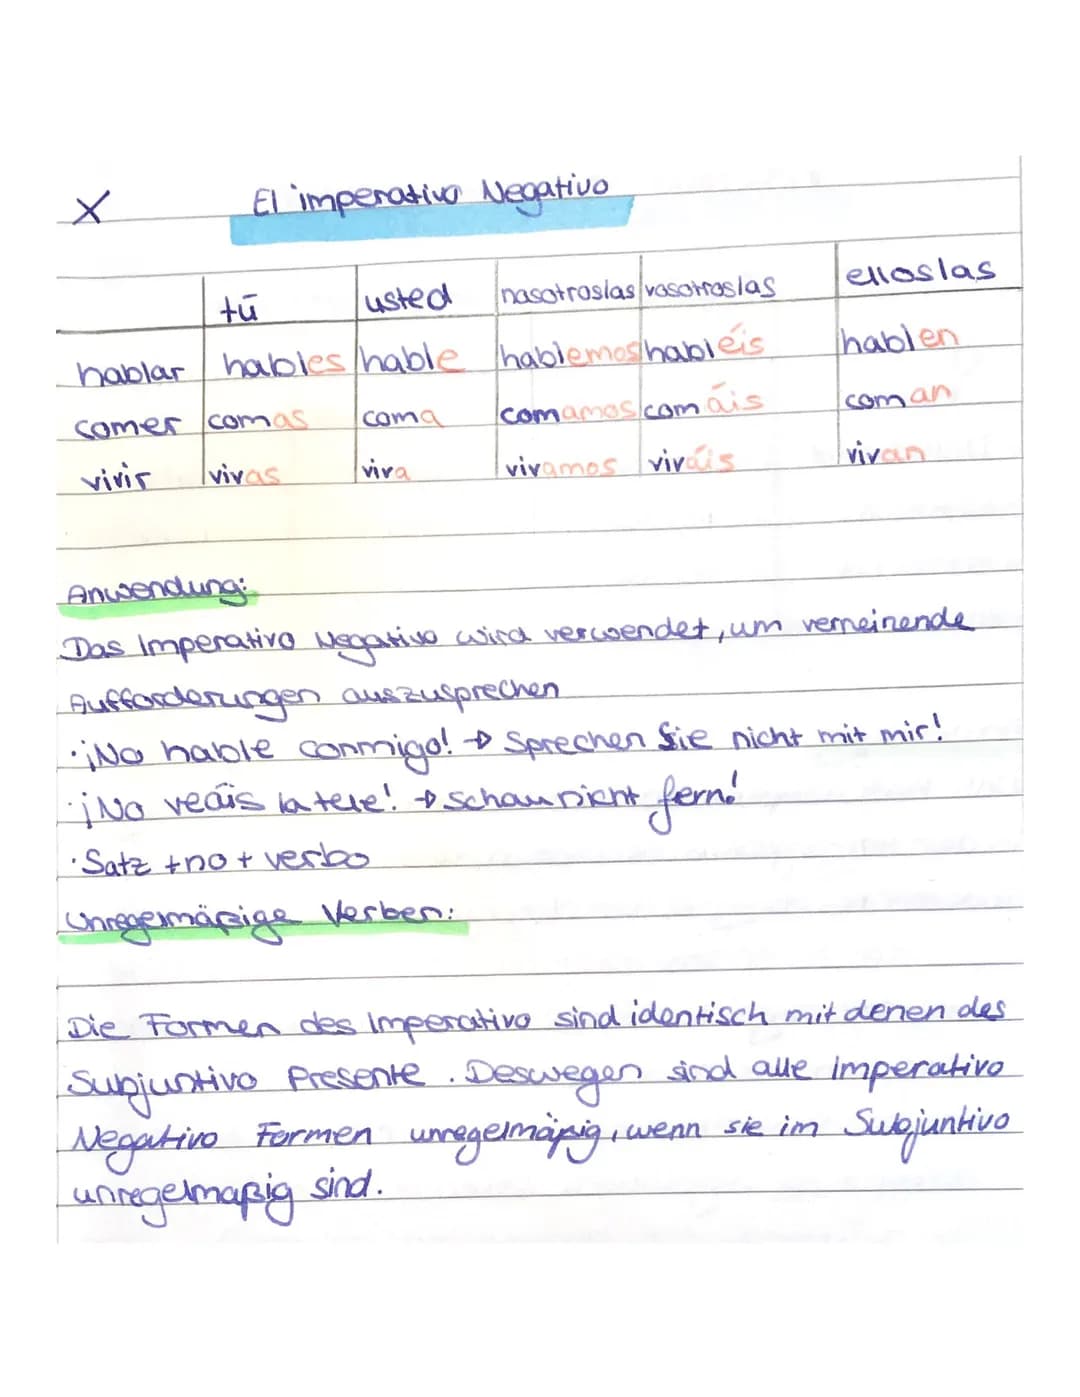 X El imperativo Negativo
tú usted nosotros/as vosotros/as ellos/as
hablar hables hable hablemos habléis hablen
comer comas coma comamos comáis coman
vivir vivas viva vivamos viváis vivan
Anwendung:
Das Imperativo Negativo wird verwendet, um verneinende
Aufforderungen auszusprechen
· ¡No hable conmigo! → Sprechen Sie nicht mit mir!
· ¡No veáis la tele! → Schau nicht fern!
· Satz + no + verbo
Unregelmäßige Verben:
Die Formen des Imperativo sind identisch mit denen des
Subjuntivo Presente. Deswegen sind alle Imperativo
Negativo Formen unregelmäßig, wenn sie im Subjuntivo
unregelmaßig sind.